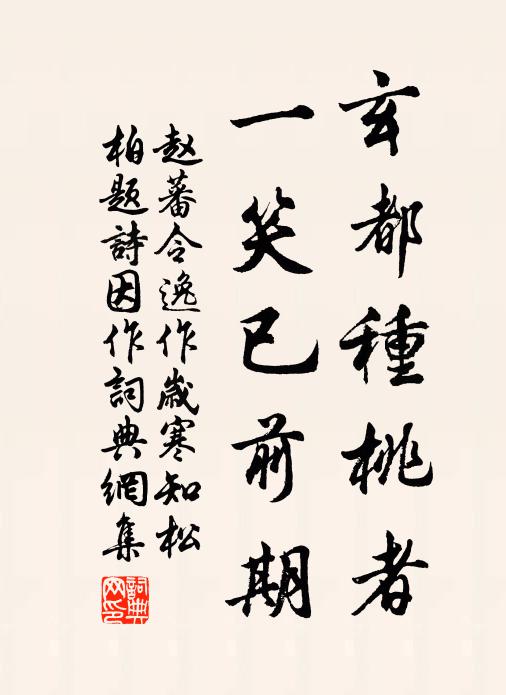 玄都種桃者
一笑已前期
赵蕃令逸作歲寒知松
柏题詩因作詞典網集
詞典网印